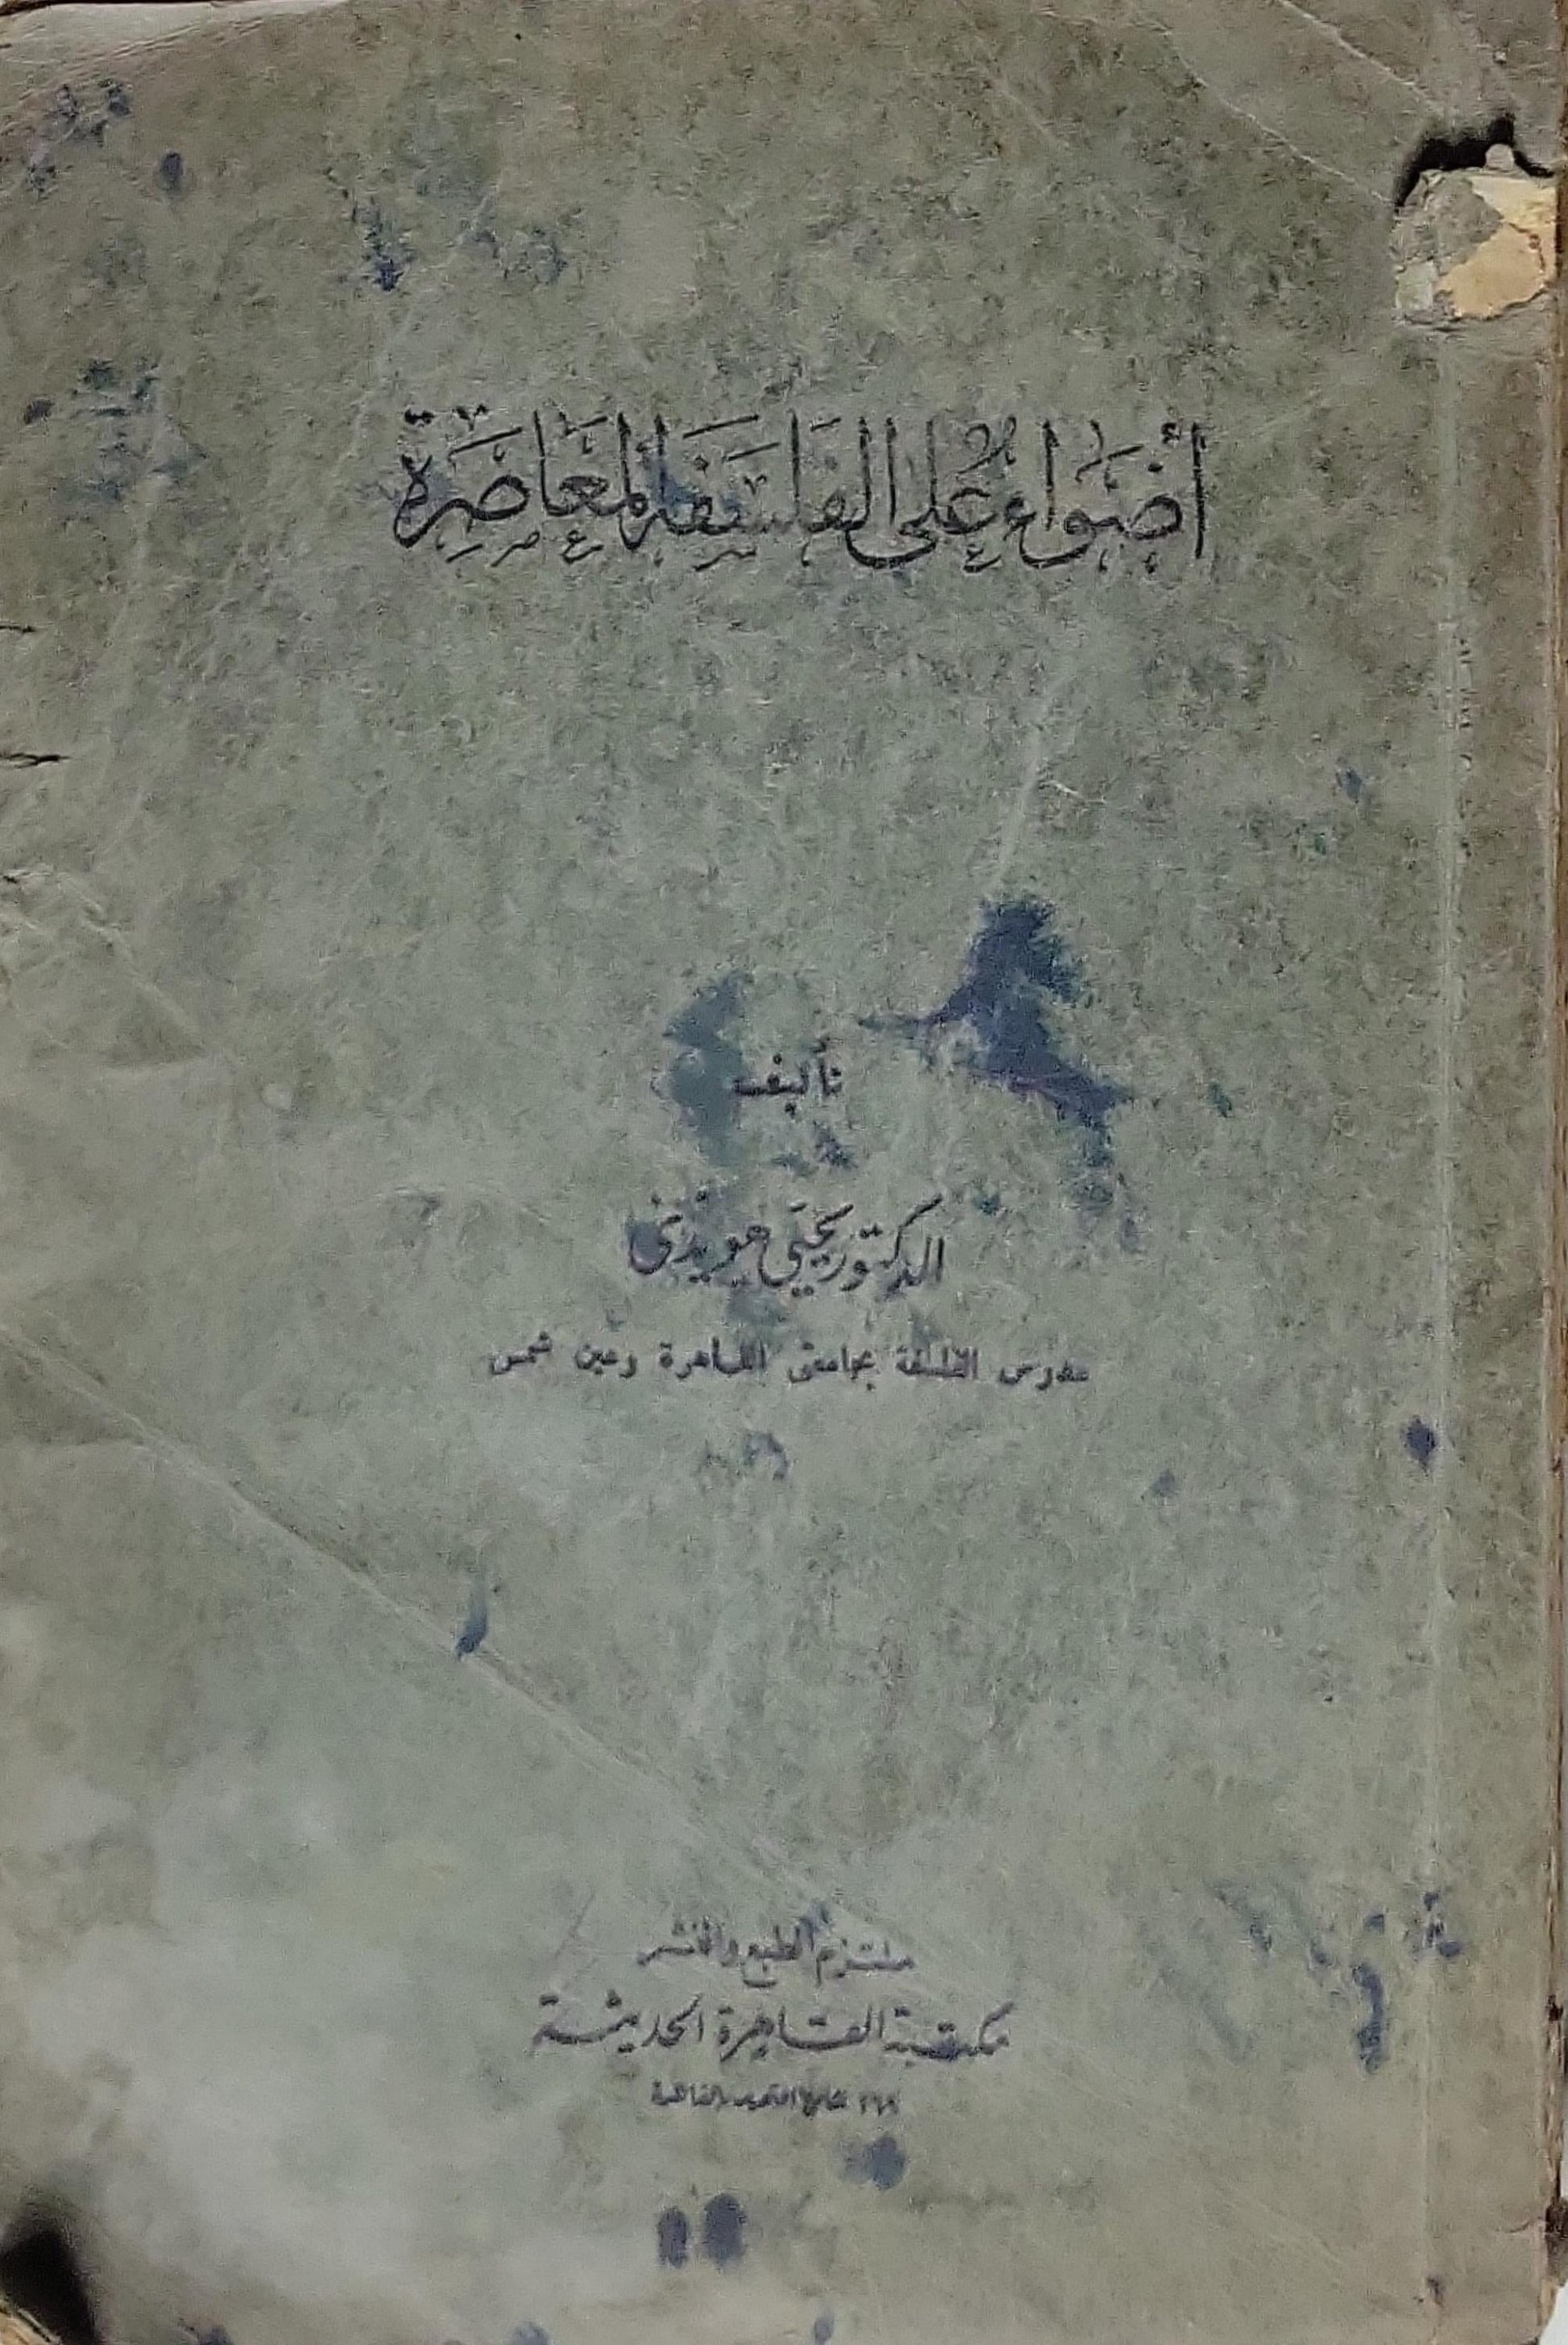 أضواء على الفلسفة المعاصرة
تأليف
الدكتور يحيى هويدى
مدرس الفلسفة بجامعتى القاهرة وعين شمس
ملتزم الطبع والنشر
مكتبة القاهرة الحديثة
شارع القاهرة